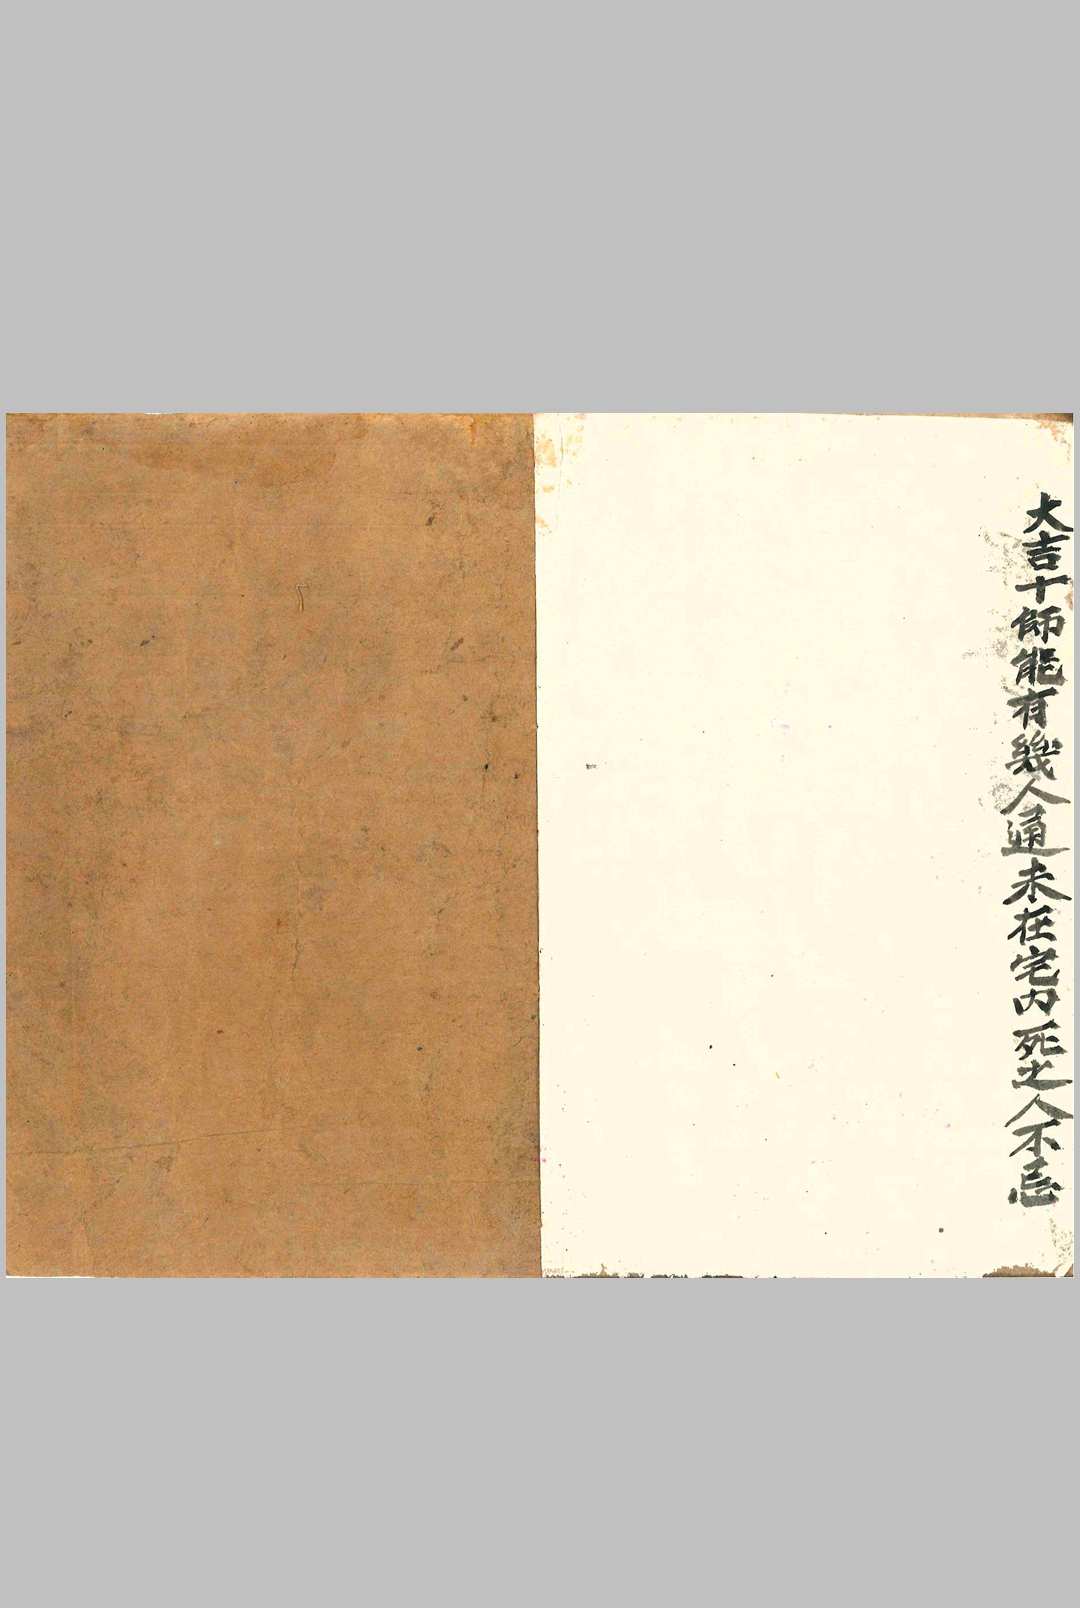 大吉十師能有幾人通未在宅内死之人不忌